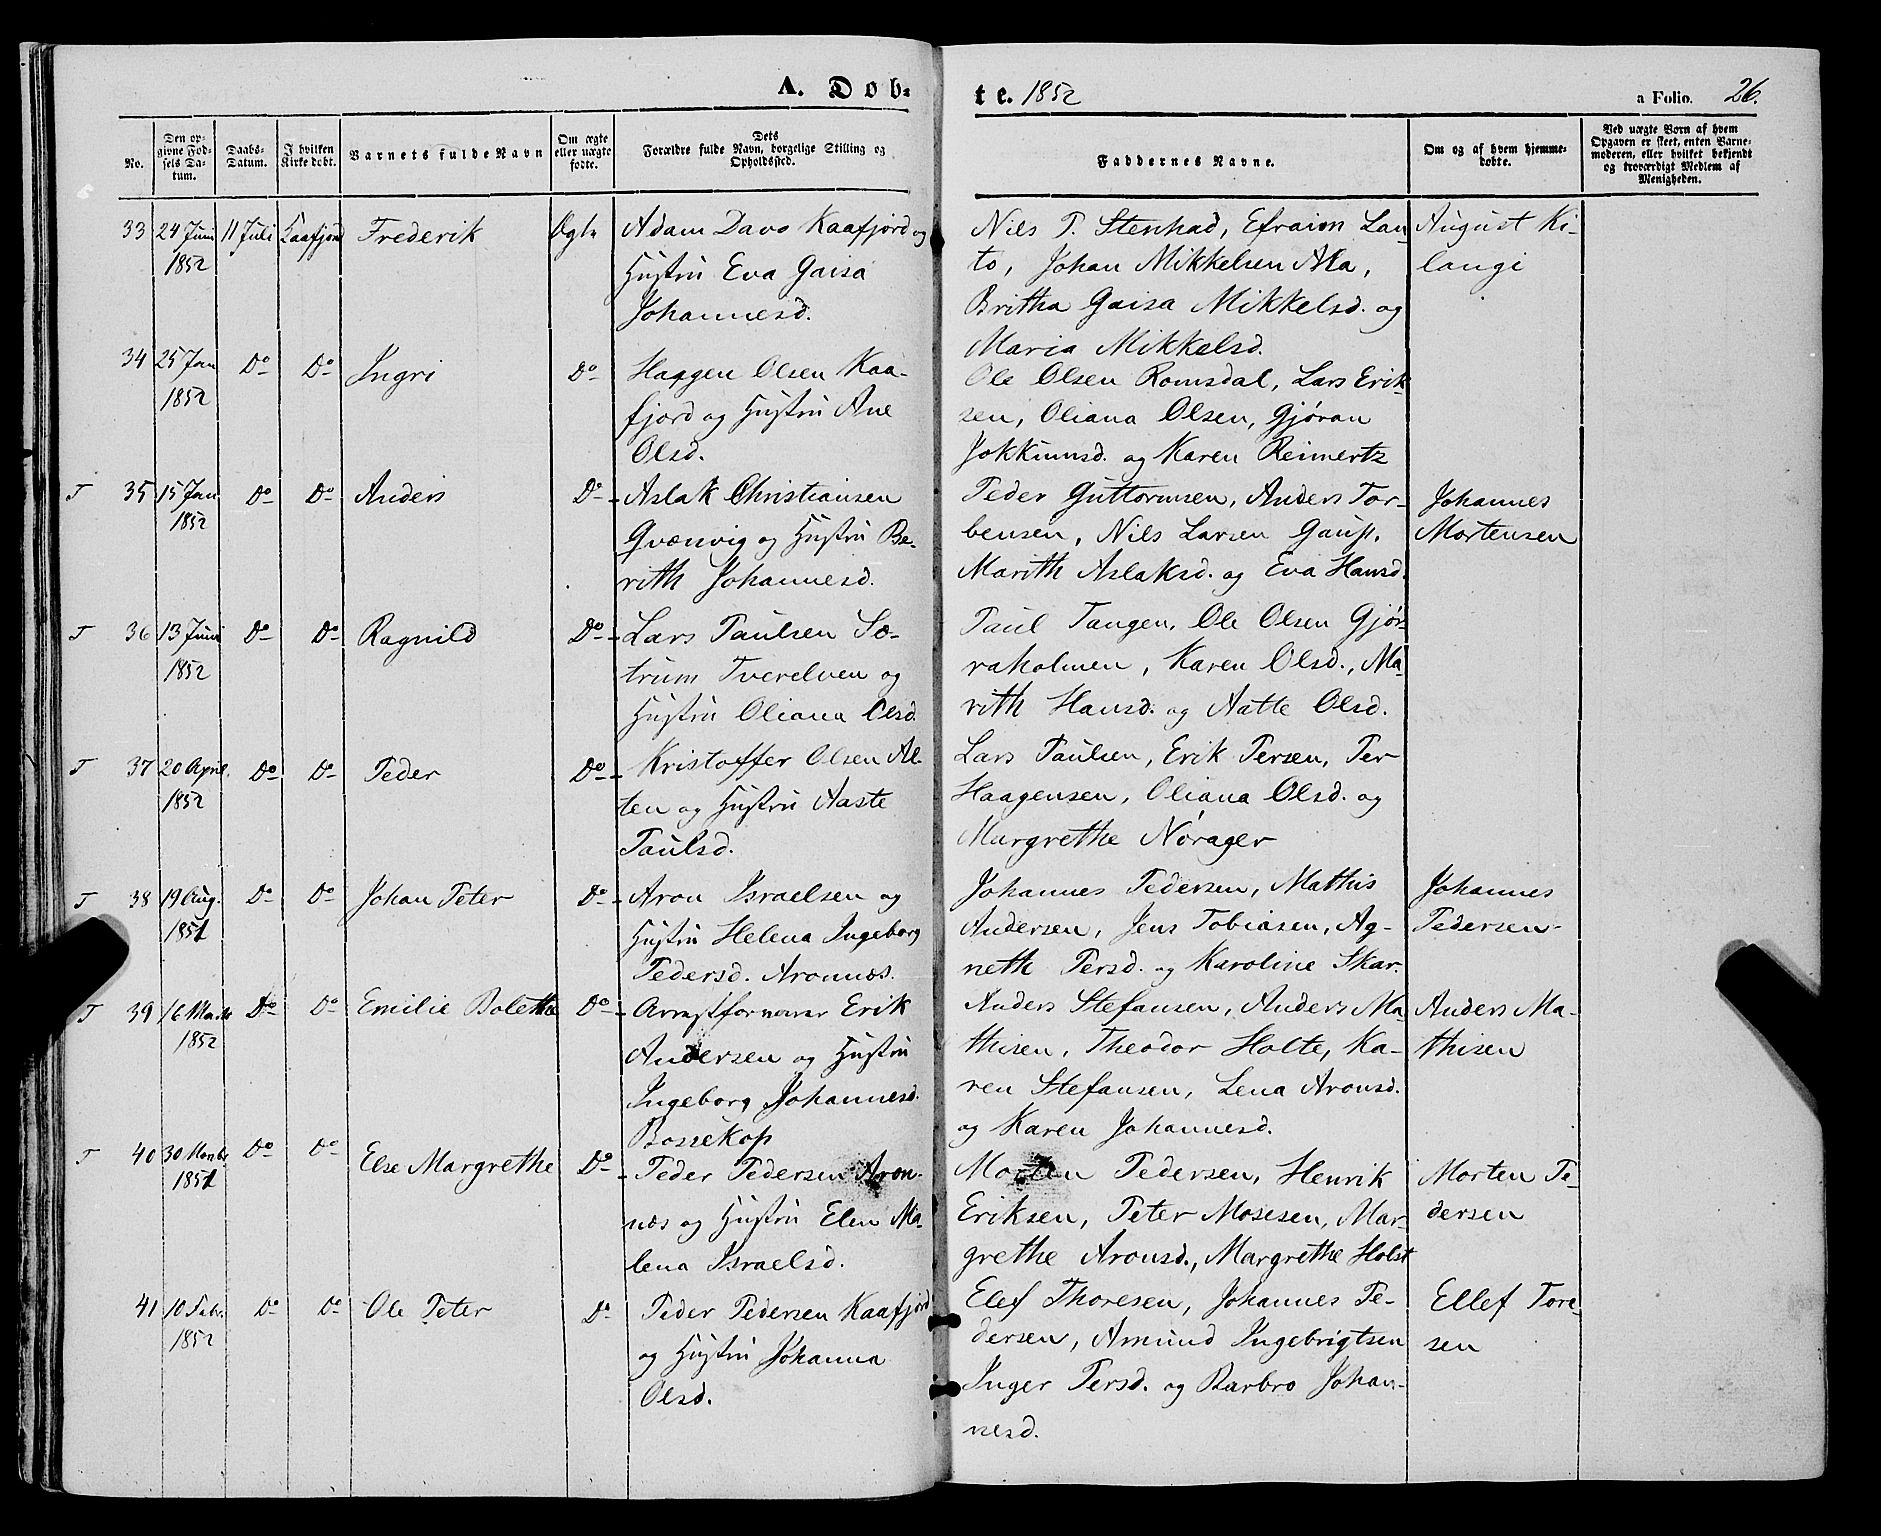 A. Døb-
te. 1852
a Folio. 26.
No.
Den op-
givne Fød-
sels Da-
tum.
Daabs-
Datum.
I hvilken
Kirke døbt.
Barnets fulde Navn
Om ægte
eller uægte
fødte.
Dets
Forældre fulde Navn, borgelige Stilling og
Opholdssted.
Faddernes Navne.
Om og af hvem hjemme-
døbte.
Ved uægte Børn af hvem
Opgaven er skeet, enten Barne-
moderen, eller hvilket bekjendt
og troværdigt Medlem af
Menigheden.
33 24 Juni 11 Juli Kaafjord Frederik Ægte Adam Davo Kaafjord og
1852 Hustru Eva Gaisa
Johannesd.
Nils P. Stenhad, Efraim Lan-
to, Johan Mikkelsen Ala,
Britha Gaisa Mikkelsd. og
Maria Mikkelsd.
August Ki-
langi
34 25 Jan Do Do Ingri Do Haagen Olsen Kaa-
1852 fjord og Hustru Ane
Olsd.
Ole Olsen Romsdal, Lars Erik-
sen, Oliana Olsen, Gjøran
Jokkumsd. og Karen Reimertz
T 35 15 Jan Do Do Anders Do Aslak Christiansen
1852 Qvænvig og Hustru Be-
rith Johannesd.
Peder Guttormsen, Anders Tor-
bensen, Nils Larsen Gaup,
Marith Aslaksd. og Eva Hansd.
Johannes
Mortensen
T 36 13 Juni Do Do Ragnild Do Lars Paulsen Sæ-
1852 trum Tverelven og
Hustru Oliana Olsd.
Paul Tangen, Ole Olsen Gjør-
raholmen, Karen Olsd., Ma-
rith Hansd. og Aatte Olsd.
T 37 20 April Do Do Peder Do Kristoffer Olsen Al-
1852 ten og Hustru Aaste
Paulsd.
Lars Paulsen, Erik Persen, Per
Haagensen, Oliana Olsd. og
Margrethe Nørager
T 38 19 Aug. Do Do Johan Peter Do Aron Israelsen og
1851 Hustru Helena Ingeborg
Pedersd. Aronnæs.
Johannes Pedersen, Mathis
Andersen, Jens Tobiasen, Ag-
neth Persd. og Karoline Skar.
Johannes
Pedersen
T 39 16 Marts Do Do Emilie Bolette Do Arrestforvarer Erik
1852 Andersen og Hustru
Ingeborg Johannesd.
Bossekop
Anders Stefansen, Anders Ma-
thisen, Theodor Holte, Ka-
ren Stefansen, Lena Aronsd.
og Karen Johannesd.
Anders Ma-
thisen
T 40 30 Novbr Do Do Else Margrethe Do Peder Pedersen Aron-
1851 næs og Hustru Elen Ma-
lena Israelsd.
Morten Pedersen, Henrik
Eriksen, Peter Mosesen, Mar-
grethe Aronsd., Margrethe Holst
Morten Pe-
dersen
41 10 Febr. Do Do Ole Peter Do Peder Pedersen Kaafjord
1852 og Hustru Johanna
Olsd.
Elef Thoresen, Johannes Pe-
dersen, Amund Ingebrigtsen
Inger Persd. og Barbro Johan-
nesd.
Ellef Tore-
sen